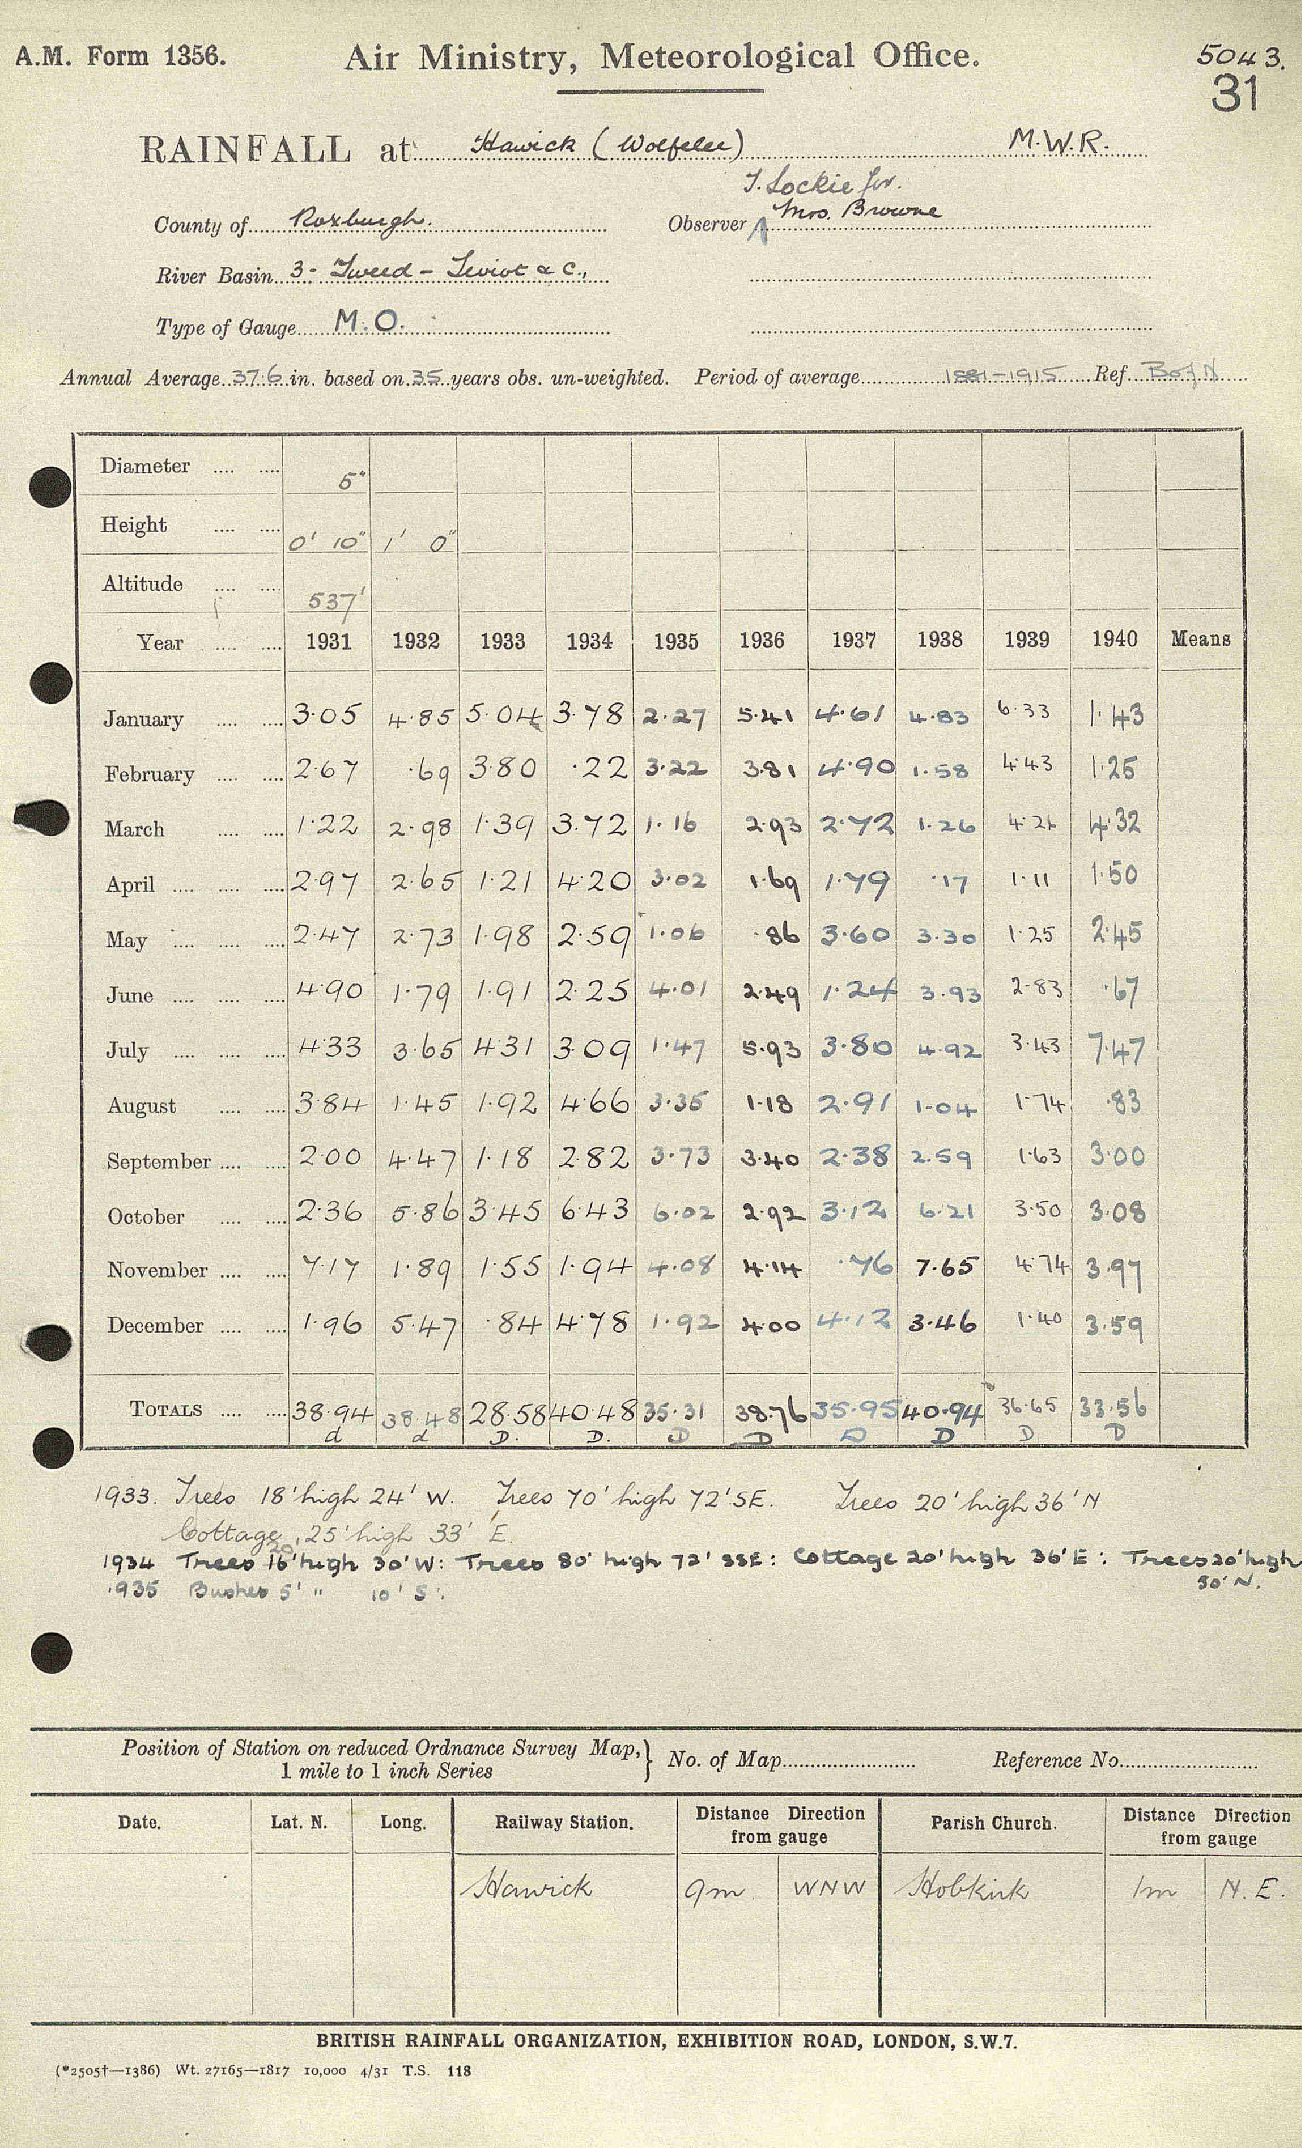 A.M. Form 1356.
Air Ministry, Meteorological Office.
5043.
31
RAINFALL at Hawick (Wolfelee) M.W.R.
T. Lockie for.
County of Roxburgh. Observer Mrs. Browne
River Basin 3- Tweed - Teviot & C.,
Type of Gauge M.O.
Annual Average 37.6 in. based on 35 years obs. un-weighted. Period of average 1881-1915 Ref. B of N
Diameter .... .... 5"
Height .... .... 0' 10" 1' 0"
Altitude .... .... 537'
Year .... .... 1931 1932 1933 1934 1935 1936 1937 1938 1939 1940 Means
January .... .... 3·05 4·85 5·04 3·78 2·27 5·41 4·61 4·83 6·33 1·43
February .... .... 2·67 ·69 3·80 ·22 3·22 3·81 4·90 1·58 4·43 1·25
March .... .... 1·22 2·98 1·39 3·72 1·16 2·93 2·72 1·26 4·26 4·32
April .... .... .... 2·97 2·65 1·21 4·20 3·02 1·69 1·79 ·17 1·11 1·50
May .... .... .... 2·47 2·73 1·98 2·59 1·06 ·86 3·60 3·30 1·25 2·45
June .... .... .... 4·90 1·79 1·91 2·25 4·01 2·49 1·24 3·93 2·83 ·67
July .... .... .... 4·33 3·65 4·31 3·09 1·47 5·93 3·80 4·92 3·43 7·47
August .... .... 3·84 1·45 1·92 4·66 3·35 1·18 2·91 1·04 1·74 ·83
September .... .... 2·00 4·47 1·18 2·82 3·73 3·40 2·38 2·59 1·63 3·00
October .... .... 2·36 5·86 3·45 6·43 6·02 2·92 3·12 6·21 3·50 3·08
November .... .... 7·17 1·89 1·55 1·94 4·08 4·14 ·76 7·65 4·74 3·97
December .... .... 1·96 5·47 ·84 4·78 1·92 4·00 4·12 3·46 1·40 3·59
TOTALS .... .... 38·94 38·48 28·58 40·48 35·31 38·76 35·95 40·94 36·65 33·56
d d D. D. D D D D D D
1933. Trees 18' high 24' W. Trees 70' high 72' SE. Trees 20' high 36' N
Cottage, 25' high 33' E.
20
1934 Trees 16' high 30' W: Trees 80' high 72' SSE: Cottage 20' high 36' E: Trees 20' high
30' N.
1935 Bushes 5' " 10' S:
Position of Station on reduced Ordnance Survey Map, } No. of Map Reference No.
1 mile to 1 inch Series
Date. Lat. N. Long. Railway Station. Distance Direction from gauge Parish Church. Distance Direction from gauge
Hawick 9m WNW Hobkirk 1m N.E.
BRITISH RAINFALL ORGANIZATION, EXHIBITION ROAD, LONDON, S.W.7.
(*2505†—1386) Wt. 27165—1817 10,000 4/31 T.S. 118